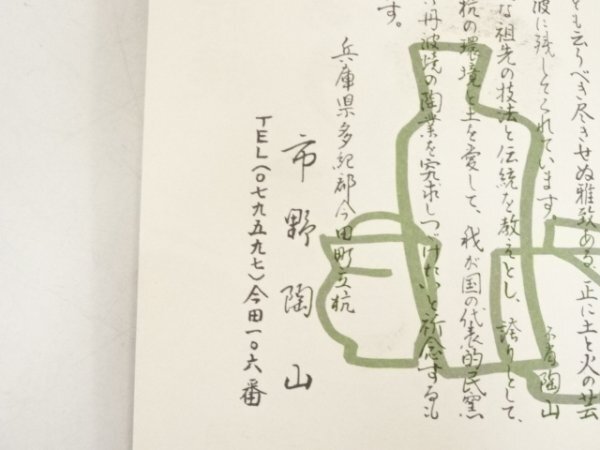 とも云うべき尽きせぬ雅致ある、正に土と火の芸
波に残してくれています。
陶山
な祖先の技法と伝統を教えとし、誇りとして、
杭の環境と土を愛して、我が国の代表的民窯
丹波焼の陶業を究求しつづけたいと祈念するも
す。
兵庫県多紀郡今田町立杭
市野陶山
TEL(〇七九五九七)今田一〇六番